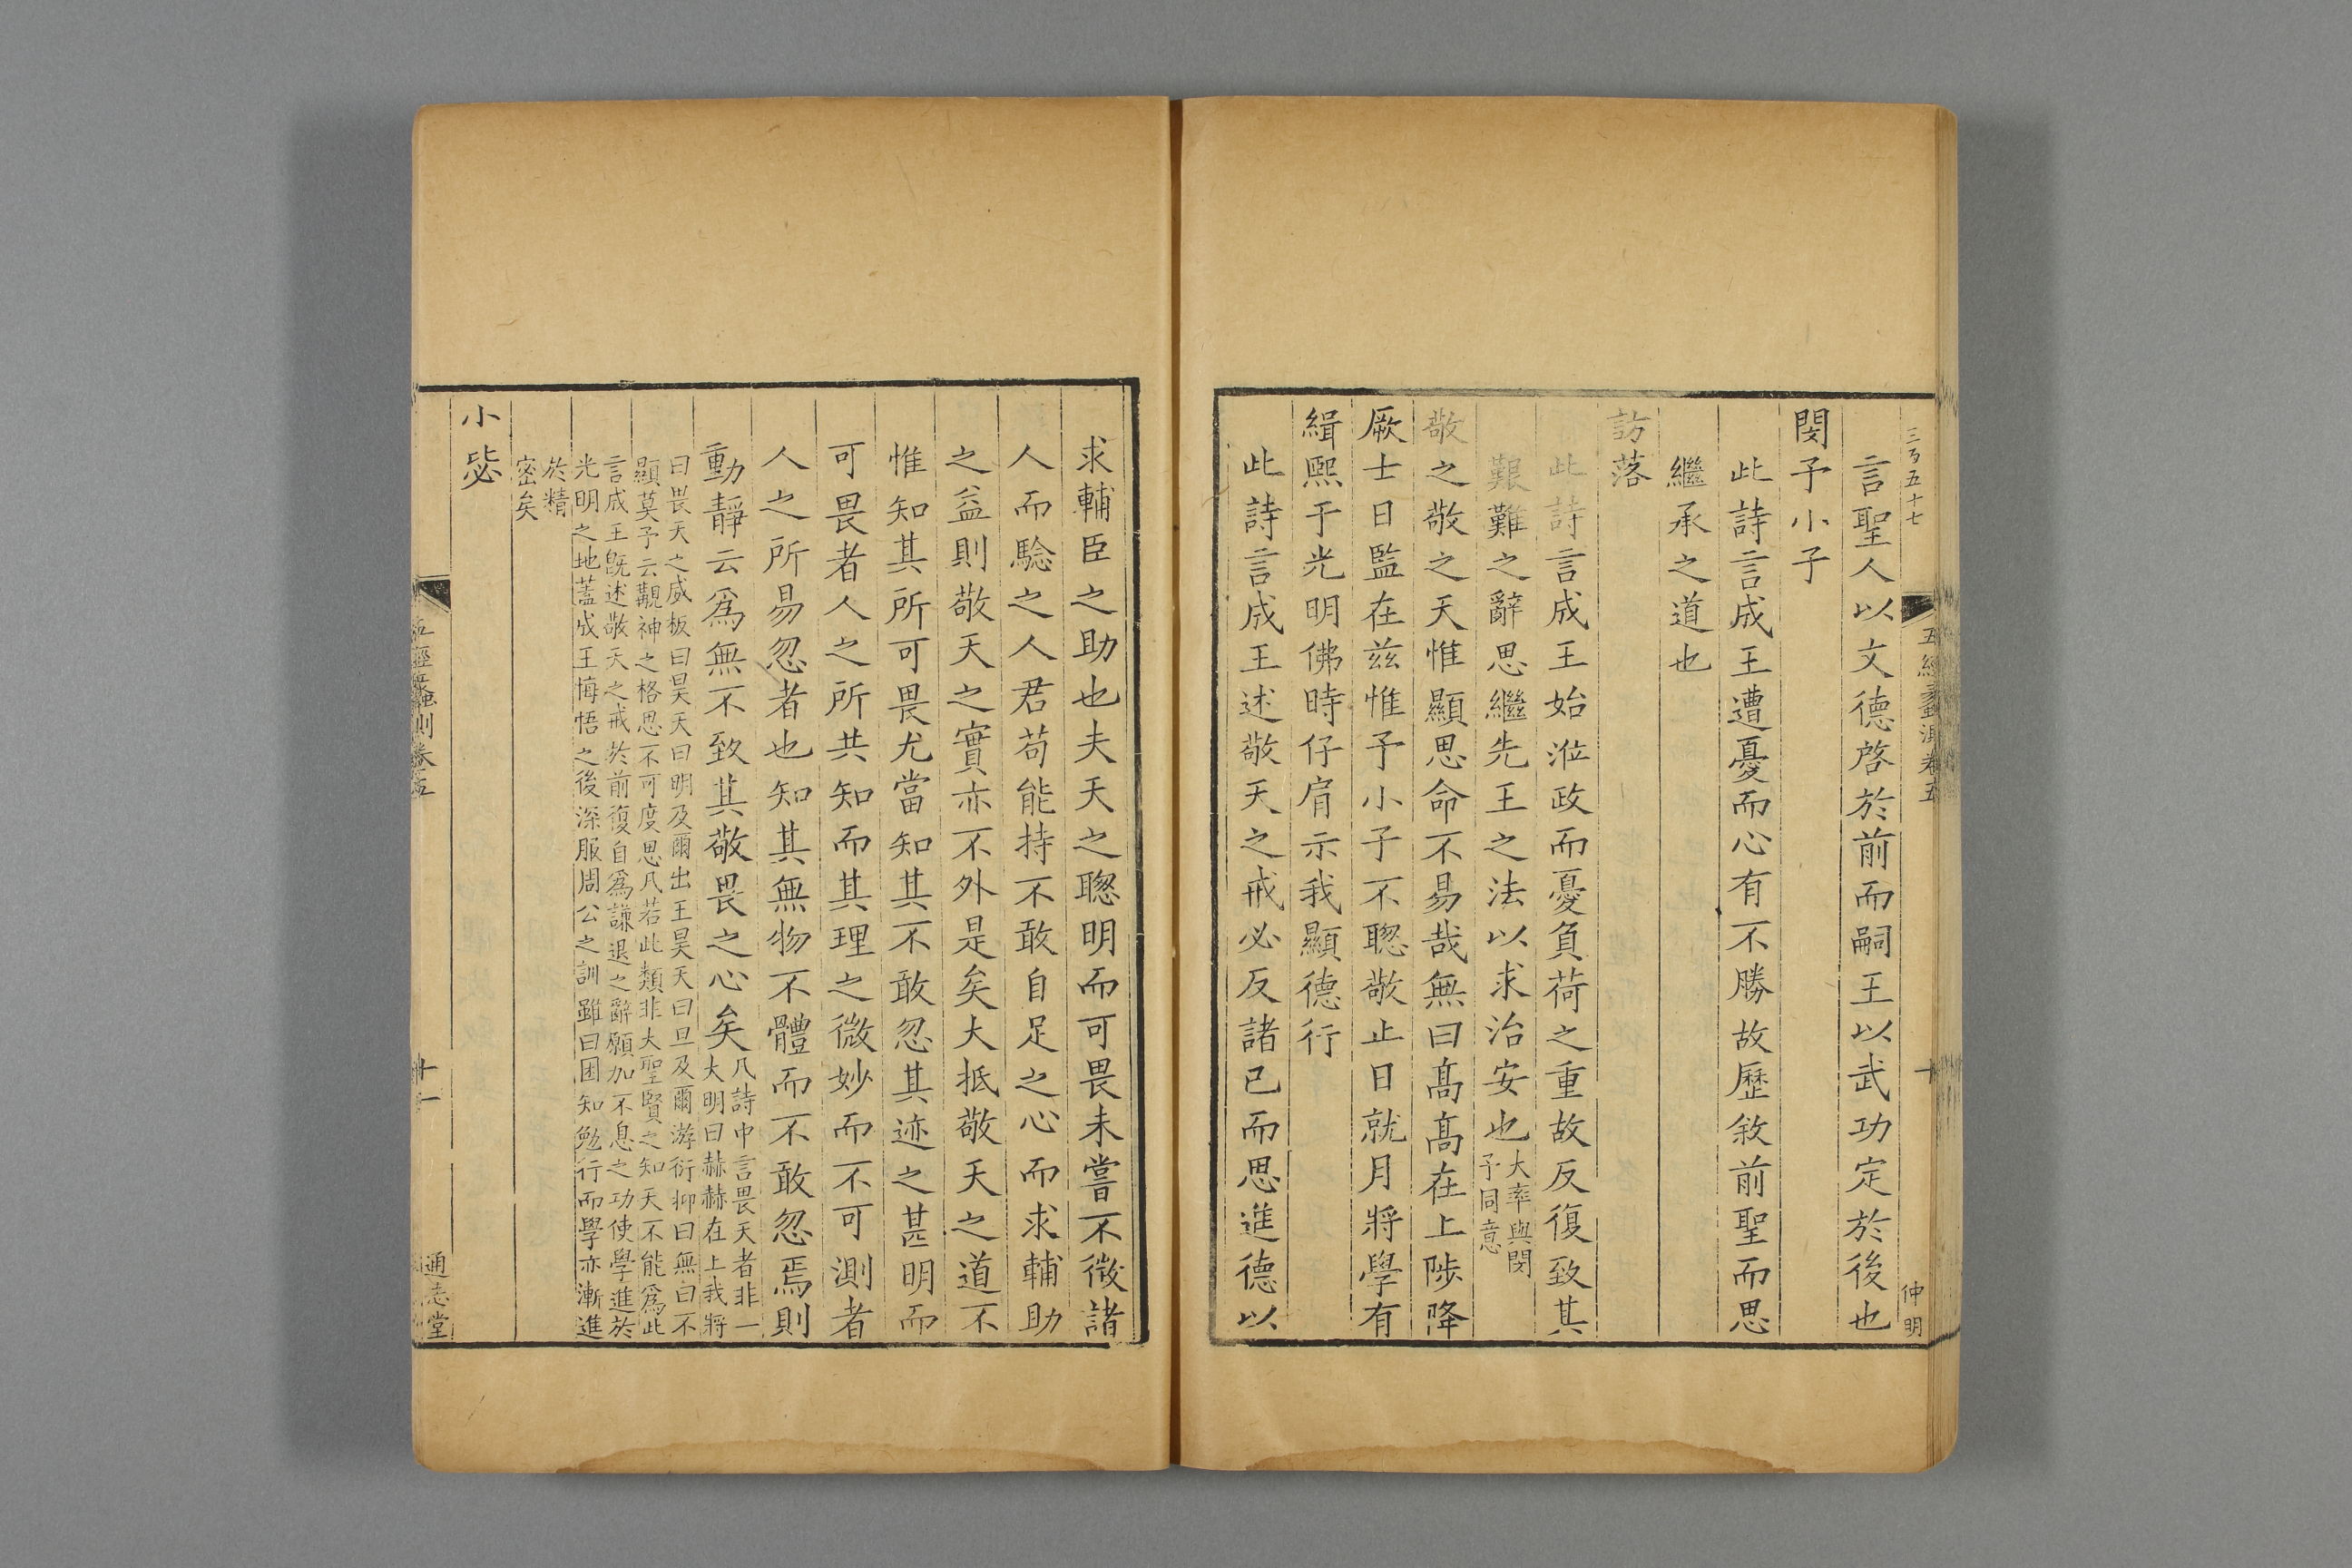 三百五十七
五經蠡測卷五
十
仲明
言聖人以文德啓於前而嗣王以武功定於後也
閔予小子
此詩言成王遭憂而心有不勝故歷敘前聖而思
繼承之道也
訪落
此詩言成王始涖政而憂負荷之重故反復致其
艱難之辭思繼先王之法以求治安也大率與閔
予同意
敬之敬之天惟顯思命不易哉無曰高高在上陟降
厥士日監在茲惟予小子不聰敬止日就月將學有
緝熙于光明佛時仔肩示我顯德行
此詩言成王述敬天之戒必反諸己而思進德以
求輔臣之助也夫天之聰明而可畏未嘗不微諸
人而驗之人君苟能持不敢自足之心而求輔助
之益則敬天之實亦不外是矣大抵敬天之道不
惟知其所可畏尤當知其不敢忽其迹之甚明而
可畏者人之所共知而其理之微妙而不可測者
人之所易忽者也知其無物不體而不敢忽焉則
動靜云為無不致其敬畏之心矣凡詩中言畏天者非一
大明曰赫赫在上我將
曰畏天之威板曰昊天曰明及爾出王昊天曰旦及爾游衍抑曰無曰不
顯莫予云覯神之格思不可度思凡若此類非大聖賢之知天不能爲此
言成王旣述敬天之戒於前復自爲謙退之辭願加不息之功使學進於
光明之地蓋成王悔悟之後深服周公之訓雖曰困知勉行而學亦漸進
於精
密矣
小毖
五經蠡測卷五
十一
通志堂